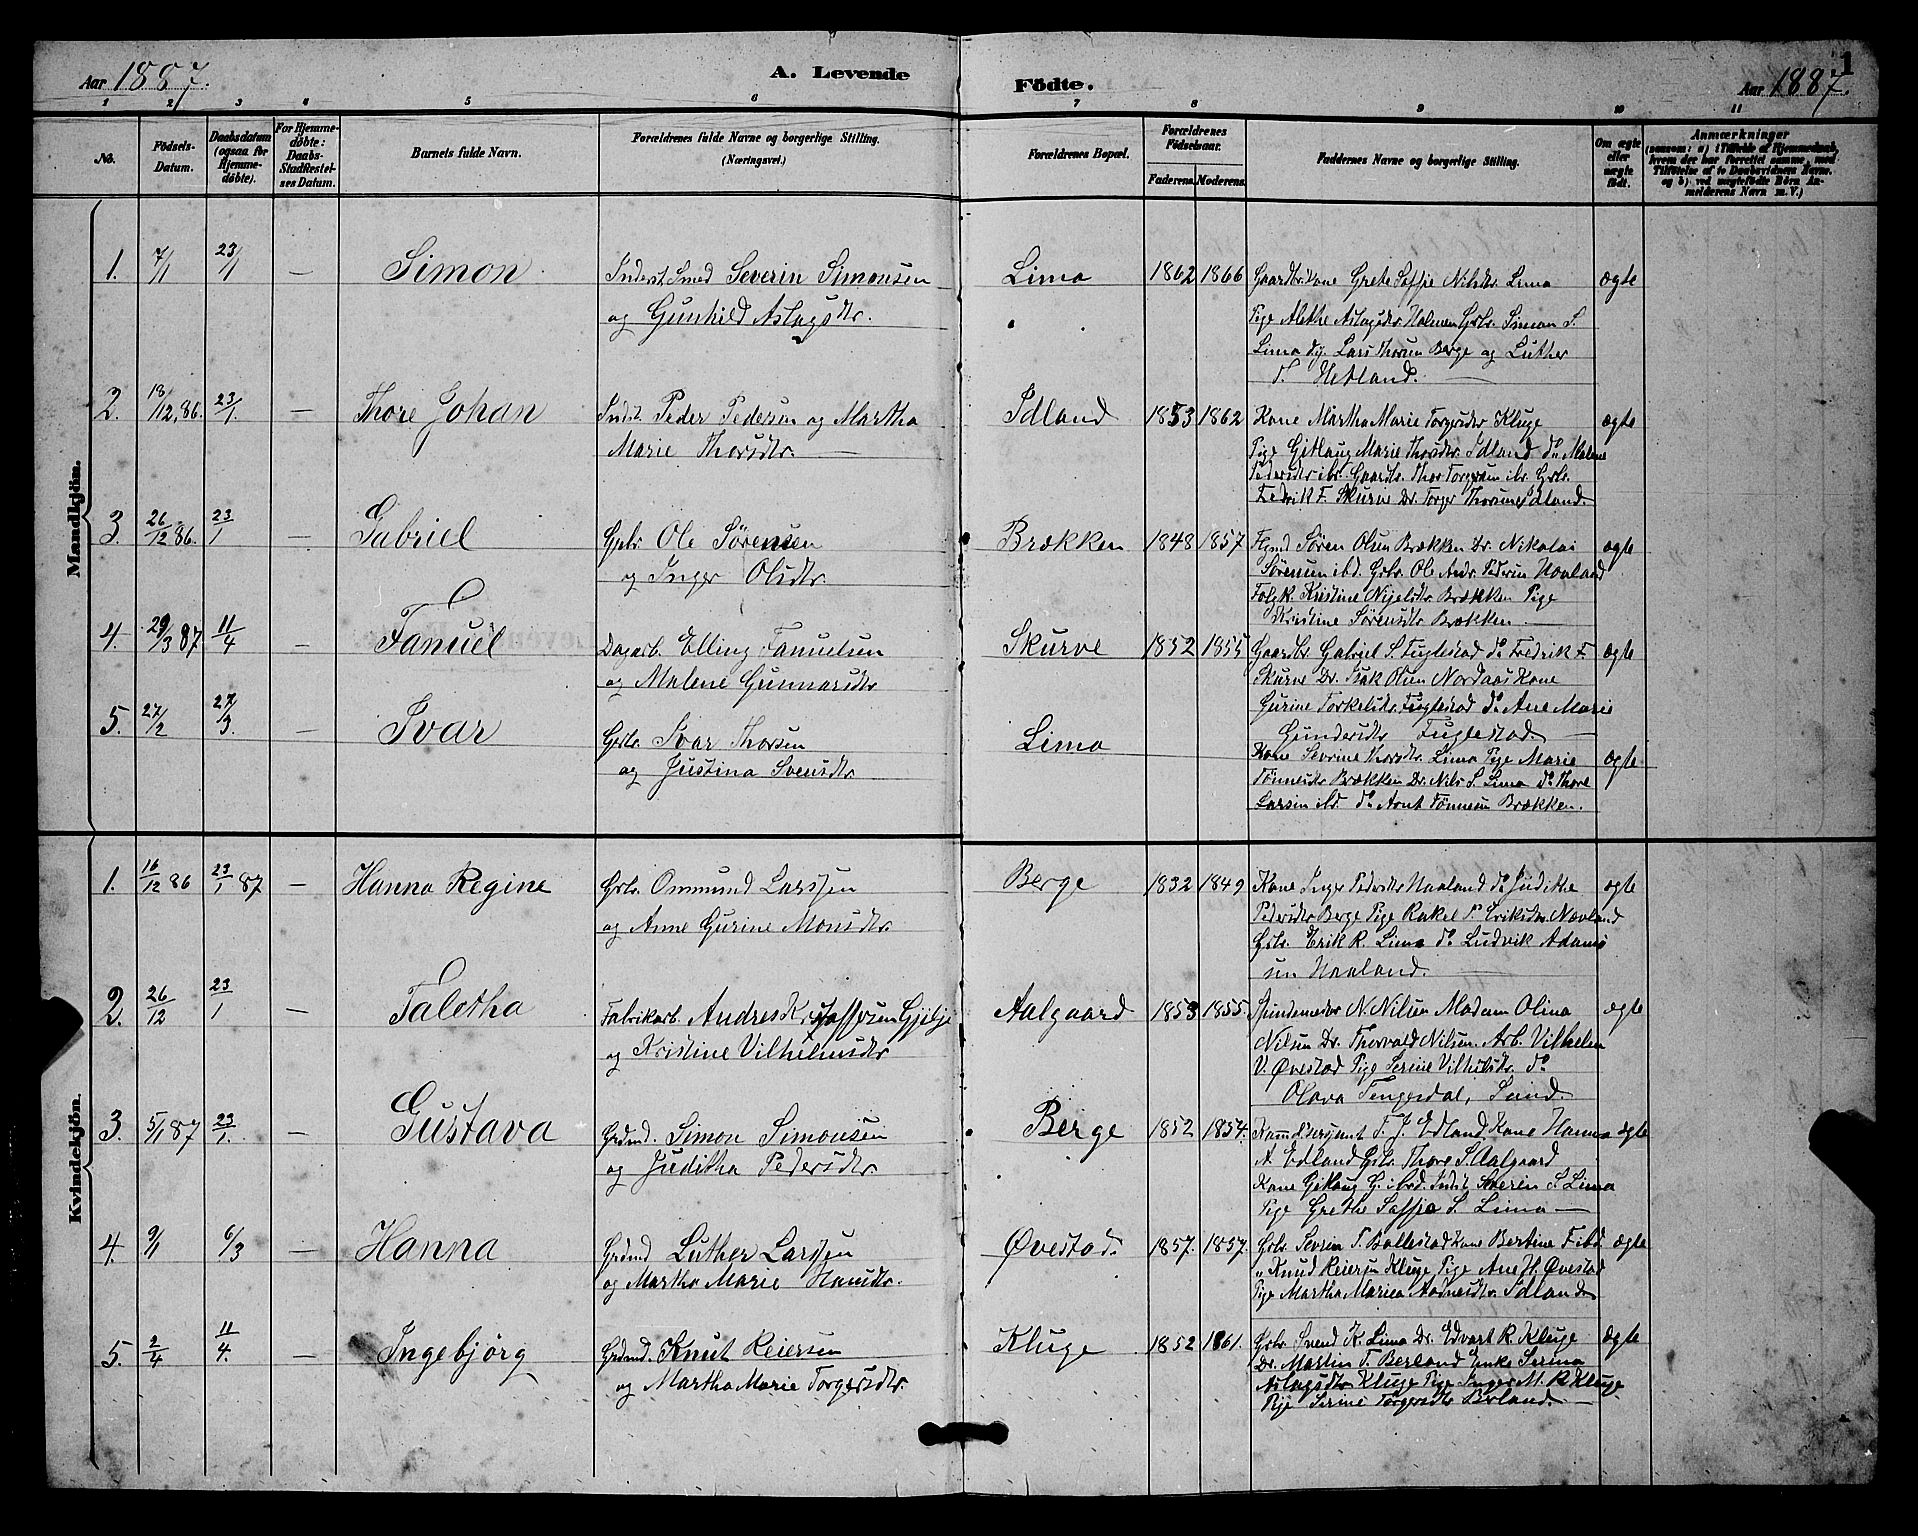 1
Aar 1887.
A. Levende Födte.
Aar 1887.
1 2 3 4 5 6 7 8 9 10 11
No.
Födsels-
Datum.
Daabsdatum
(ogsaa for
Hjemme-
döbte).
For Hjemme-
døbte:
Daabs-
Stadfæstel-
ses Datum.
Barnets fulde Navn.
Forældrenes fulde Navne og borgerlige Stilling.
(Næringsvei.)
Forældrenes Bopæl.
Forældrenes
Födselsaar.
Faderens. Moderens.
Faddernes Navne og borgerlige Stilling.
Om ægte
eller
uægte
født.
Anmærkninger
(saasom: a) i Tilfælde af Hjemmedaab,
hvem der har forrettet samme, med
Tilföielse af to Daabsvidners Navne,
og b) ved uægtefödte Börn An-
melderens Navn m. V.)
Mandkjön.
1. 7/1 23/1 — Simon
Inderst Smed Severin Simonsen
og Gunhild Aslagsdtr.
Lima 1862 1866
Gaardbr.kone Grete Soffie Nilsdtr. Lima
Pige Alethe Aslagsdtr. Holmen Grbr. Simon S.
Lima Ug. Lars Thorsen Berge og Luther
T. Hetland.
ægte
2. 18/12 86. 23/1. — Thore Johan
Indst. Peder Pedersen og Martha
Marie Thorsdtr.
Idland 1853 1862
Kone Martha Marie Torgersdtr Kluge
Pige Gitlaug Marie Thorsdtr. Idland do Malene
Pedersdtr ibr. Gaardbr. Thor Torgersen ibr. Grbr.
Fedrik F. Skurve Dr. Torger Thorsen Idland.
ægte
3. 26/12 86. 23/1 — Gabriel
Gbr. Ole Sørensen
og Inger Olsdtr.
Brækken 1848 1857
Søren Olsen Brækken Dr. Nikolai
Sørensen ibd. Grbr. Ole Andr. Pedersen Haaland
Folgk. Kristine Nijelsdtr. Brækken Pige
Kristine Sørensdtr. Brækken.
ægte
4. 29/3 87 11/4 — Fanuel
Dagarb. Elling Fanuelsen
og Malene Gunnarsdtr
Skurve 1852 1855
Gaardbr Gabriel S. Fuglestad do Fredrik F.
Skurve Dr. Isak Olsen Nordaas Kone
Gurine Torkelsdtr. Fuglestad do Ane Marie
Gundersdtr Fuglestad.
ægte
5. 27/2 27/3. — Ivar
Grbr. Ivar Thorsen
og Justina Svensdtr
Lima
Kone Severine Thorsdtr. Lima Pige Marie
Tønnesdtr Brækken Dr. Nils S. Lima do Thore
Larsen ibr. do Arnt Tønnesen Brækken.
ægte
Kvindekjön.
1. 16/12 86 23/1 87 — Hanna Regine
Grbr. Ommund Larssen
og Anne Gurine Monsdtr.
Berge 1832 1849
Kone Inger Pedersdtr Haaland do Judithe
Pedersdtr Berge Pige Rakel Eriksdtr. Navland
Grbr. Erik R. Lima do Ludvik Adams
sen Haaland.
ægte
2. 26/12 23/1 — Taletha
Fabrikarb. Andreas Kristoffersen Gjelje
og Kristine Vilhelmsdtr
Aalgaard 1853 1855.
Spindemester N. Nilsen Madam Olina
Nilsen Dr. Thorvald Nilsen. Arb. Vilhelm
V. Øvestad Pige Serine Vilhelsdtr. do
Olava Tengesdal, Sand.
ægte
3. 5/1 87 23/1. — Gustava
Grdmd. Simon Simonsen
og Juditha Pedersdtr
Berge 1852 1854.
Komdsersjant T. J. Edland Kone Hanna
A. Edland Grbr. Thore S. Aalgaard
Kone Gitlaug G. ibd. Indst Severin S. Lima
Pige Grethe Soffie S. Lima —
ægte
4. 9/1 6/3 — Hanna
Grdmd Luther Larssen
og Martha Marie Hansdtr.
Øvestad. 1857. 1857.
Grbr. Sevrin T. Bollestad Kone Bertine F. ibd.
" Knud Reiersen Kluge Pige Ane H. Øvestad
Pige Martha Maria Aadnesdtr. Idland
ægte
5. 2/4 11/4. — Ingebjörg
Grdmd. Knut Reiersen
og Martha Marie Torgersdtr.
Kluge 1852 1861.
Grbr. Svend K. Lima Dr. Edvart R. Kluge
Dr. Martin T. Berland Enke Serina
Aslagsdtr Kluge Pige Inger M. R. Kluge
Pige Serine Torgersdtr Berland. —
Ægte